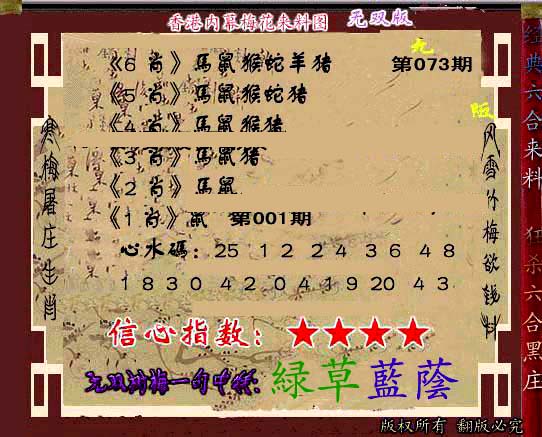 香港内幕梅花来料图 无双版
九
《6 肖》馬鼠猴蛇羊猪 第073期
《5 肖》馬鼠猴蛇猪
《4 肖》馬鼠猴猪
《3 肖》馬鼠猪
《2 肖》馬鼠
《1 肖》鼠 第001期
心水碼：25 12 24 36 48
18 30 42 04 19 20 43
信心指数：★★★★
无双 梅一句中特：
緑草藍蔭
寒梅屠庄生肖
风雪 梅欲 料
经典六合来料
狂杀六合黑庄
版权所有 翻版必究